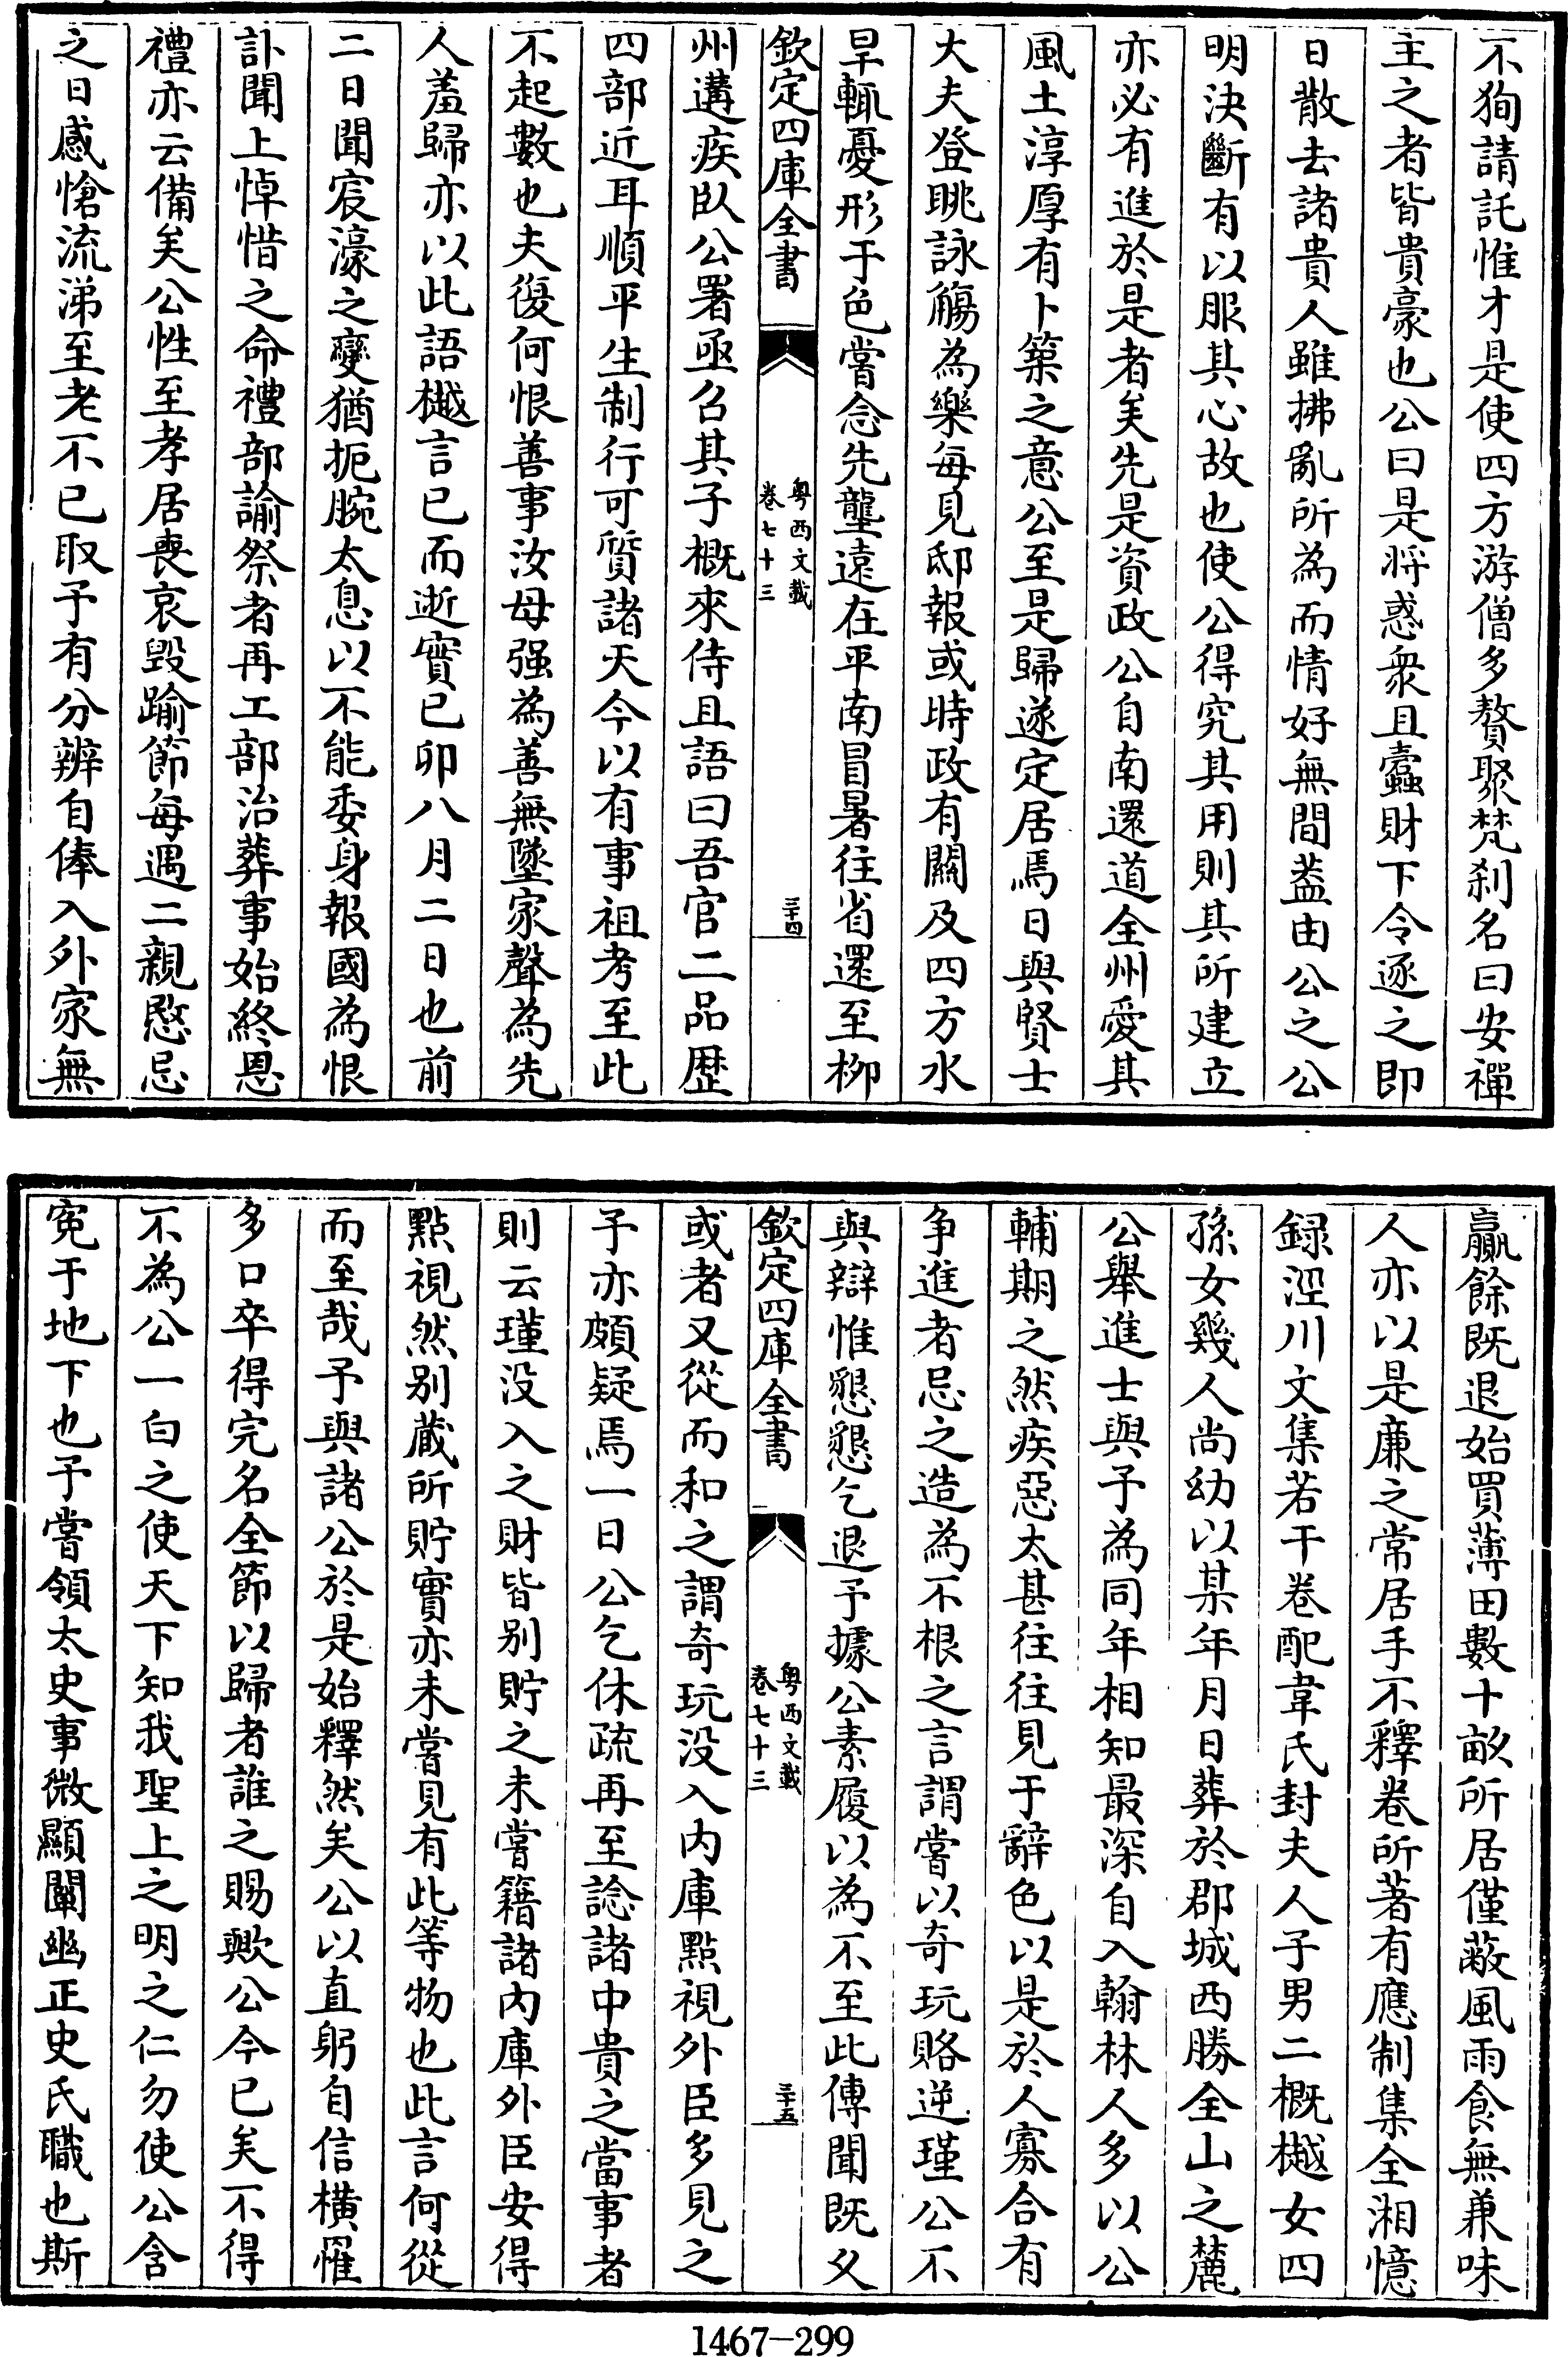 不狥請託惟才是使四方游僧多贅聚梵刹名曰安禪
主之者皆貴豪也公曰是將惑衆且蠧財下令逐之即
日散去諸貴人雖拂亂所為而情好無間葢由公之公
明決斷有以服其心故也使公得究其用則其所建立
亦必有進於是者矣先是資政公自南還道全州愛其
風土淳厚有卜築之意公至是歸遂定居焉日與賢士
大夫登眺詠觴為樂每見邸報或時政有闗及四方水
旱輒憂形于色嘗念先壟遠在平南冒暑往省還至柳
欽定四庫全書
粤西文載
卷七十三
三十四
州遘疾臥公署亟召其子概來侍且語曰吾官二品歴
四部近耳順平生制行可質諸天今以有事祖考至此
不起數也夫復何恨善事汝母强為善無墜家聲為先
人羞歸亦以此語樾言已而逝實已卯八月二日也前
二日聞宸濠之變猶扼腕太息以不能委身報國為恨
訃聞上悼惜之命禮部諭祭者再工部治葬事始終恩
禮亦云備矣公性至孝居喪哀毁踰節每遇二親愍忌
之日感愴流涕至老不已取予有分辨自俸入外家無
贏餘既退始買薄田數十畝所居僅蔽風雨食無兼味
人亦以是廉之常居手不釋卷所著有應制集全湘憶
録涇川文集若干卷配韋氏封夫人子男二概樾女四
孫女幾人尚幼以某年月日葬於郡城西勝全山之麓
公舉進士與予為同年相知最深自入翰林人多以公
輔期之然疾惡太甚往往見于辭色以是於人寡合有
争進者忌之造為不根之言謂嘗以奇玩賂逆瑾公不
與辯惟懇懇乞退予據公素履以為不至此傳聞既乆
欽定四庫全書
粤西文載
卷七十三
三十五
或者又從而和之謂奇玩没入内庫點視外臣多見之
予亦頗疑焉一日公乞休疏再至諗諸中貴之當事者
則云瑾没入之財皆别貯之未嘗籍諸内庫外臣安得
點視然别蔵所貯實亦未嘗見有此等物也此言何從
而至哉予與諸公於是始釋然矣公以直躬自信横罹
多口卒得完名全節以歸者誰之賜歟公今已矣不得
不為公一白之使天下知我聖上之明之仁勿使公含
寃于地下也予嘗領太史事微顯闡幽正史氏職也斯
1467-299